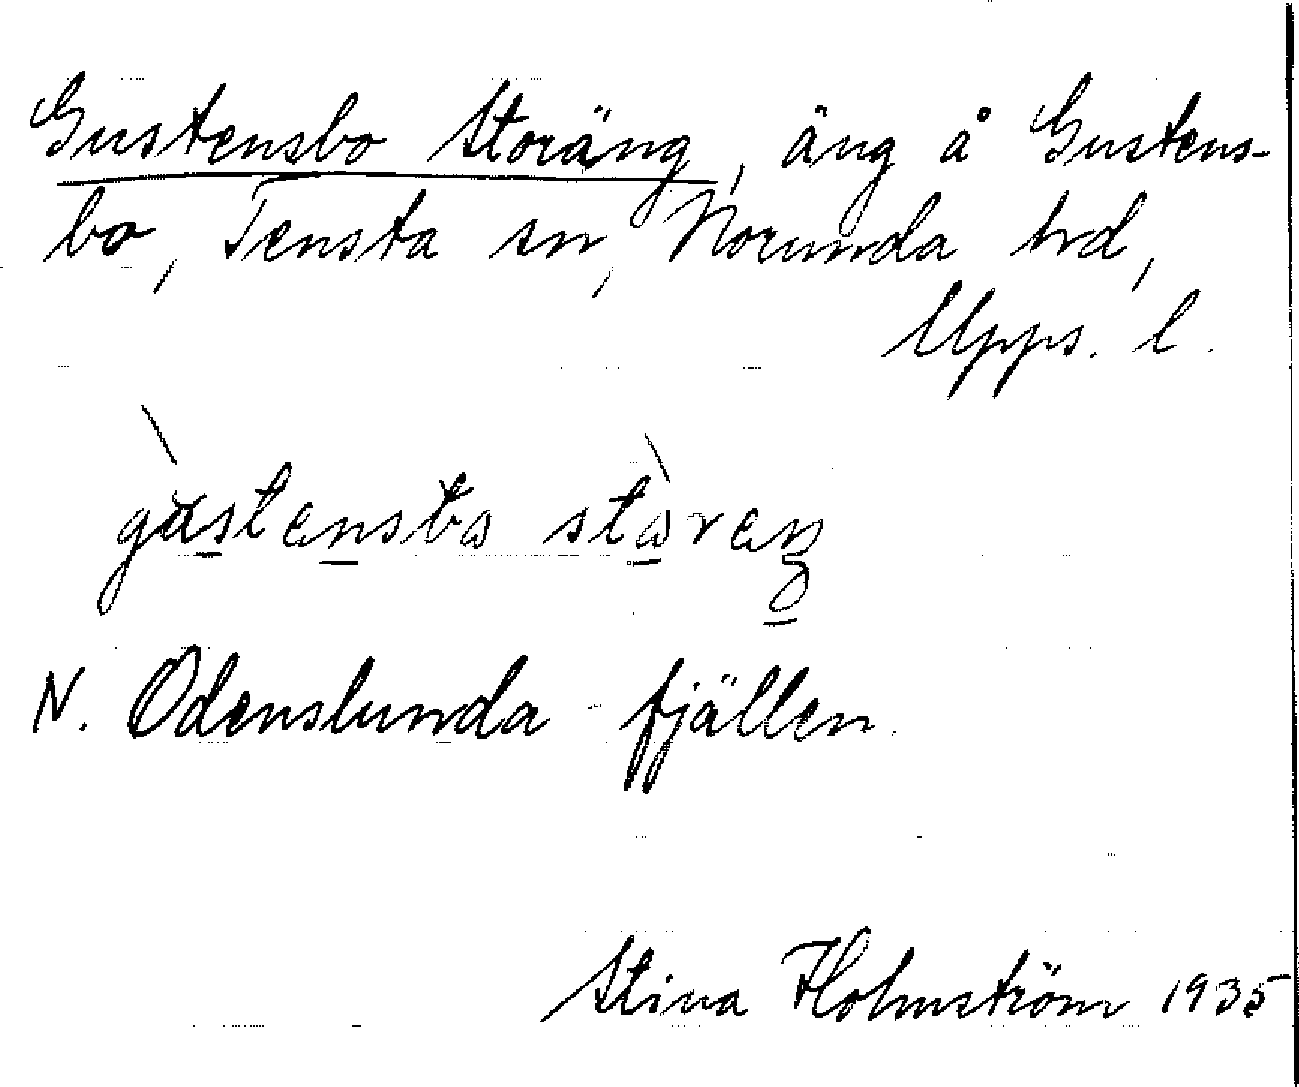 Gustensbo Storäng, äng å Gustens-
bo, Tensta sn, Norunda hd,
Upps. l.
gùstensbɷ stɷ̀reŋ
N. Odenslunda - fjällen.
Stina Holmström 1935